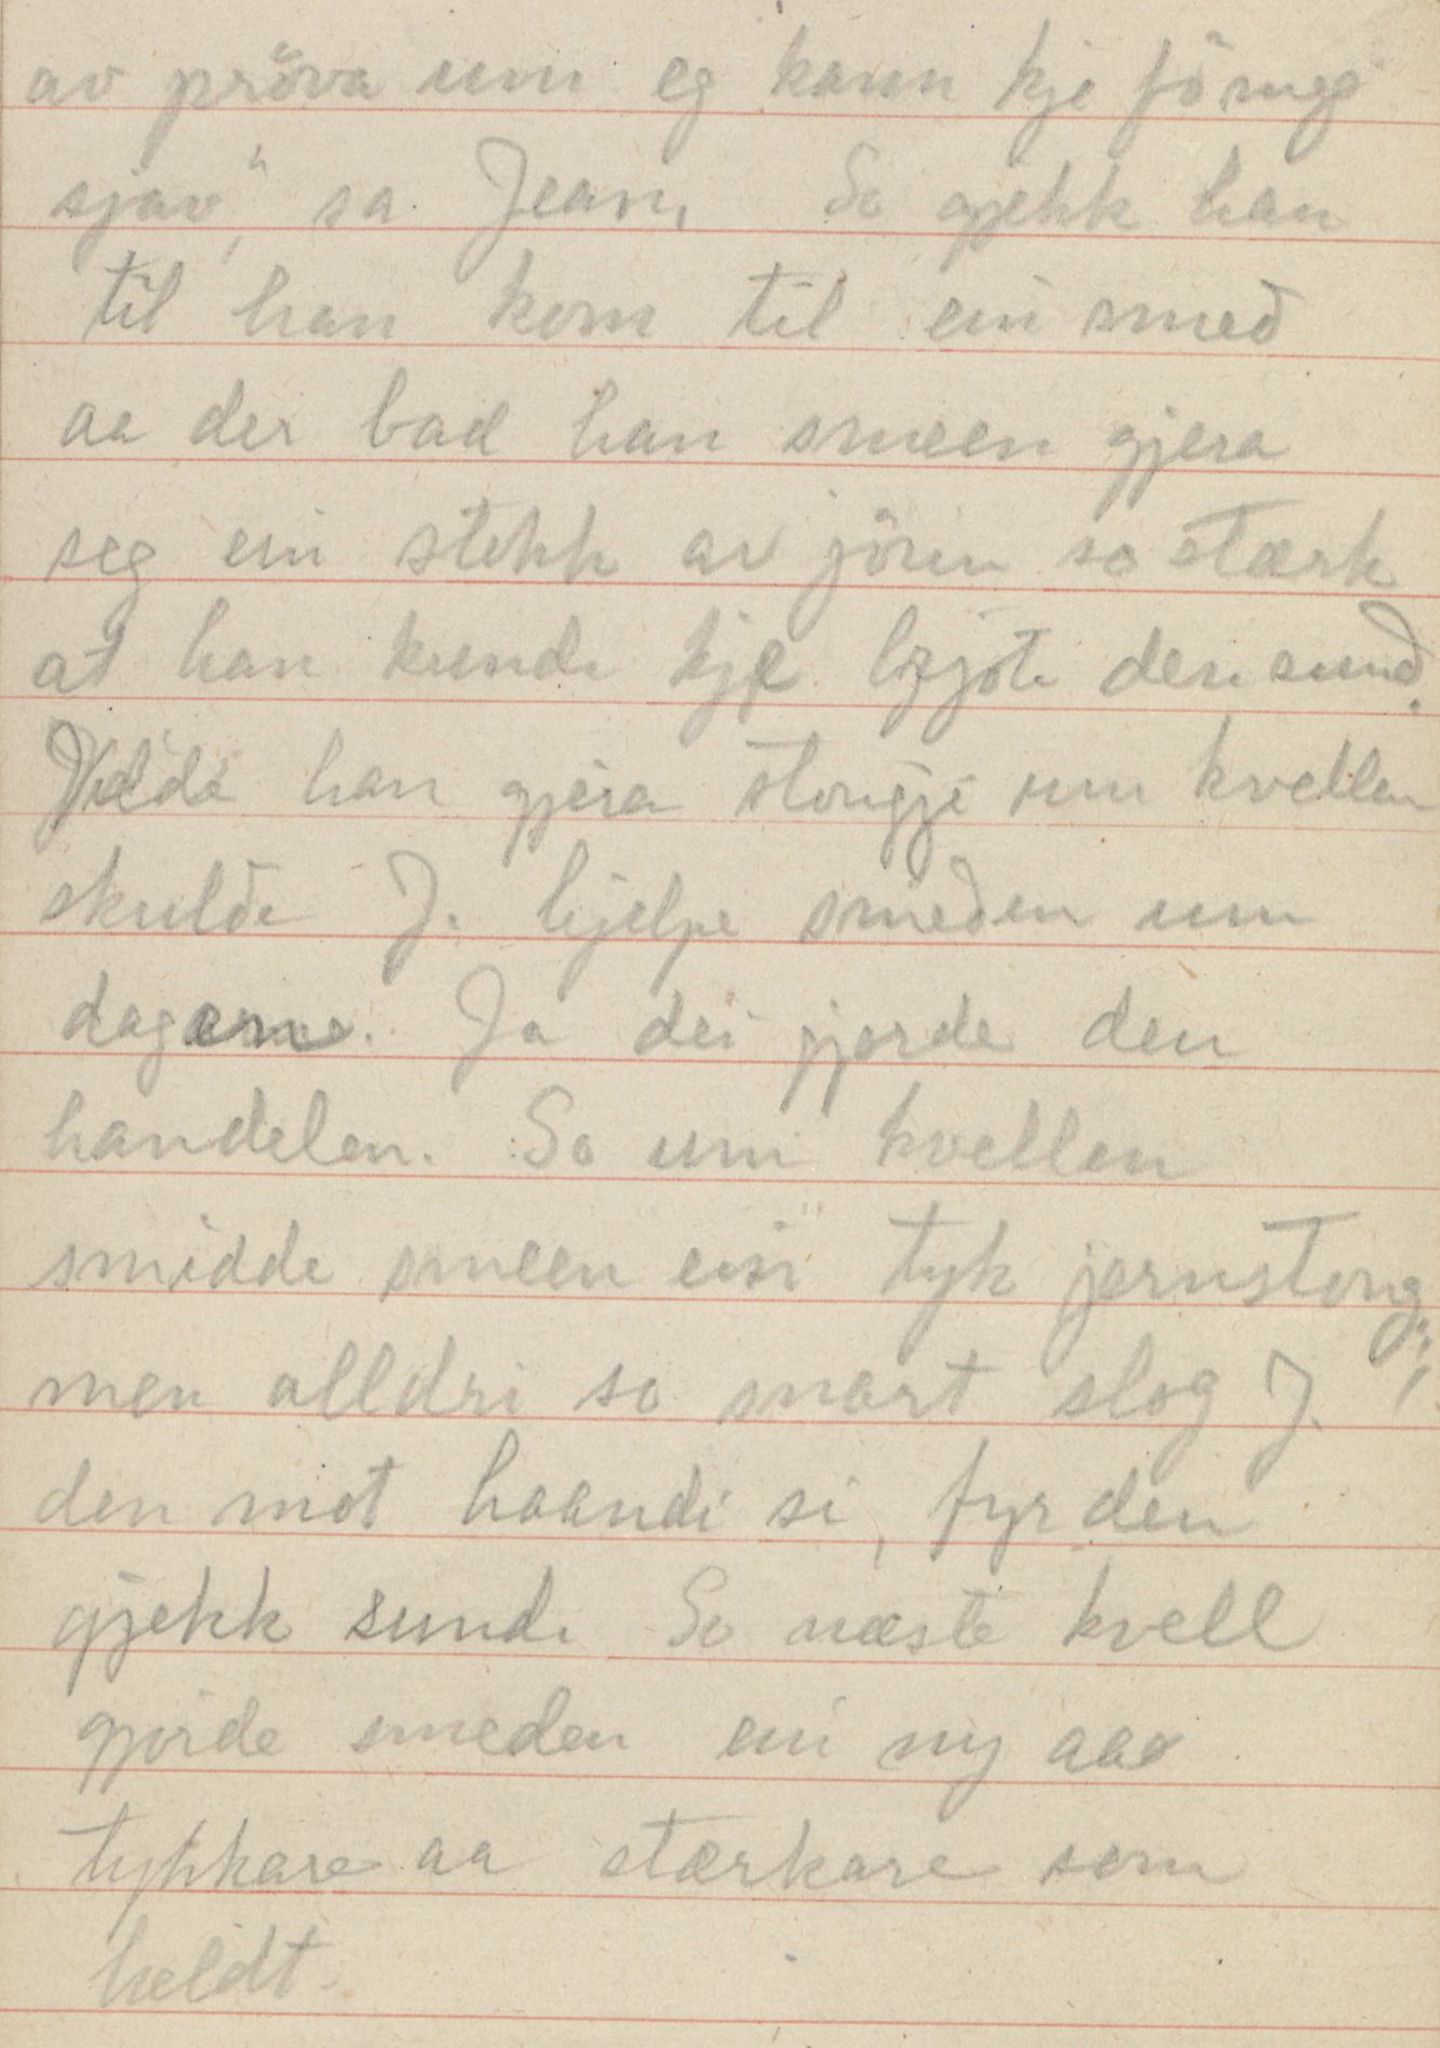 av pröva um eg kann kje fö meg
sjøv", sa Jean. So gjekk han
til han kom til ein smed
aa der bad han smeen gjera
seg ein stokk av jönn so stærk
at han kunde kje brjote den sund.
Vilde han gjera stongje um kvellen
skulde J. hjelpe smeden um
dagarne. Ja dei gjorde den
handelen. So um kvellen
smidde smeen ein tyk jernstong;
men alldri so snart slog J.
den mot haandi si, fyr den
gjekk sund. So næste kvell
gjorde smeden ein ny aa
tykkare aa stærkare som
heldt.